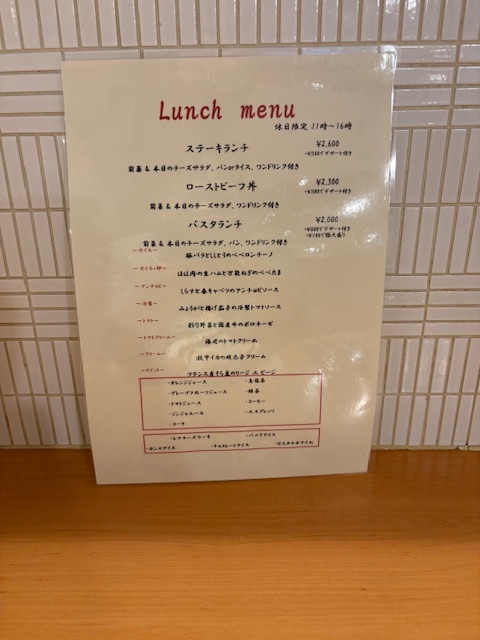 Lunch menu
休日限定 11時～16時
ステーキランチ ¥2,600
+¥500でデザート付き
前菜 & 本日のチーズサラダ、パンorライス、ワンドリンク付き
ローストビーフ丼 ¥2,300
+¥500でデザート付き
前菜 & 本日のチーズサラダ、ワンドリンク付き
パスタランチ ¥2,000
+¥500でデザート付き
+¥300で麺大盛り
前菜 & 本日のチーズサラダ、パン、ワンドリンク付き
～オイル～
豚バラとししとうのペペロンチーノ
ほほ肉の生ハムと万能ねぎのぺぺたま
～アンチョビ～
しらすと春キャベツのアンチョビソース
～冷製～
みょうがと揚げ茄子の冷製トマトソース
～トマト～
彩り野菜と国産牛のボロネーゼ
～トマトクリーム～
海老のトマトクリーム
～クリーム～
紋甲イカの明太子クリーム
フランス産そら豆のリージ エ ビージ
・オレンジジュース ・烏龍茶
・グレープフルーツジュース ・緑茶
・トマトジュース ・コーヒー
・ジンジャエール ・エスプレッソ
・コーラ
・レアチーズケーキ ・バニラアイス
・カシスアイス ・チョコレートアイス ・ピスタチオアイス